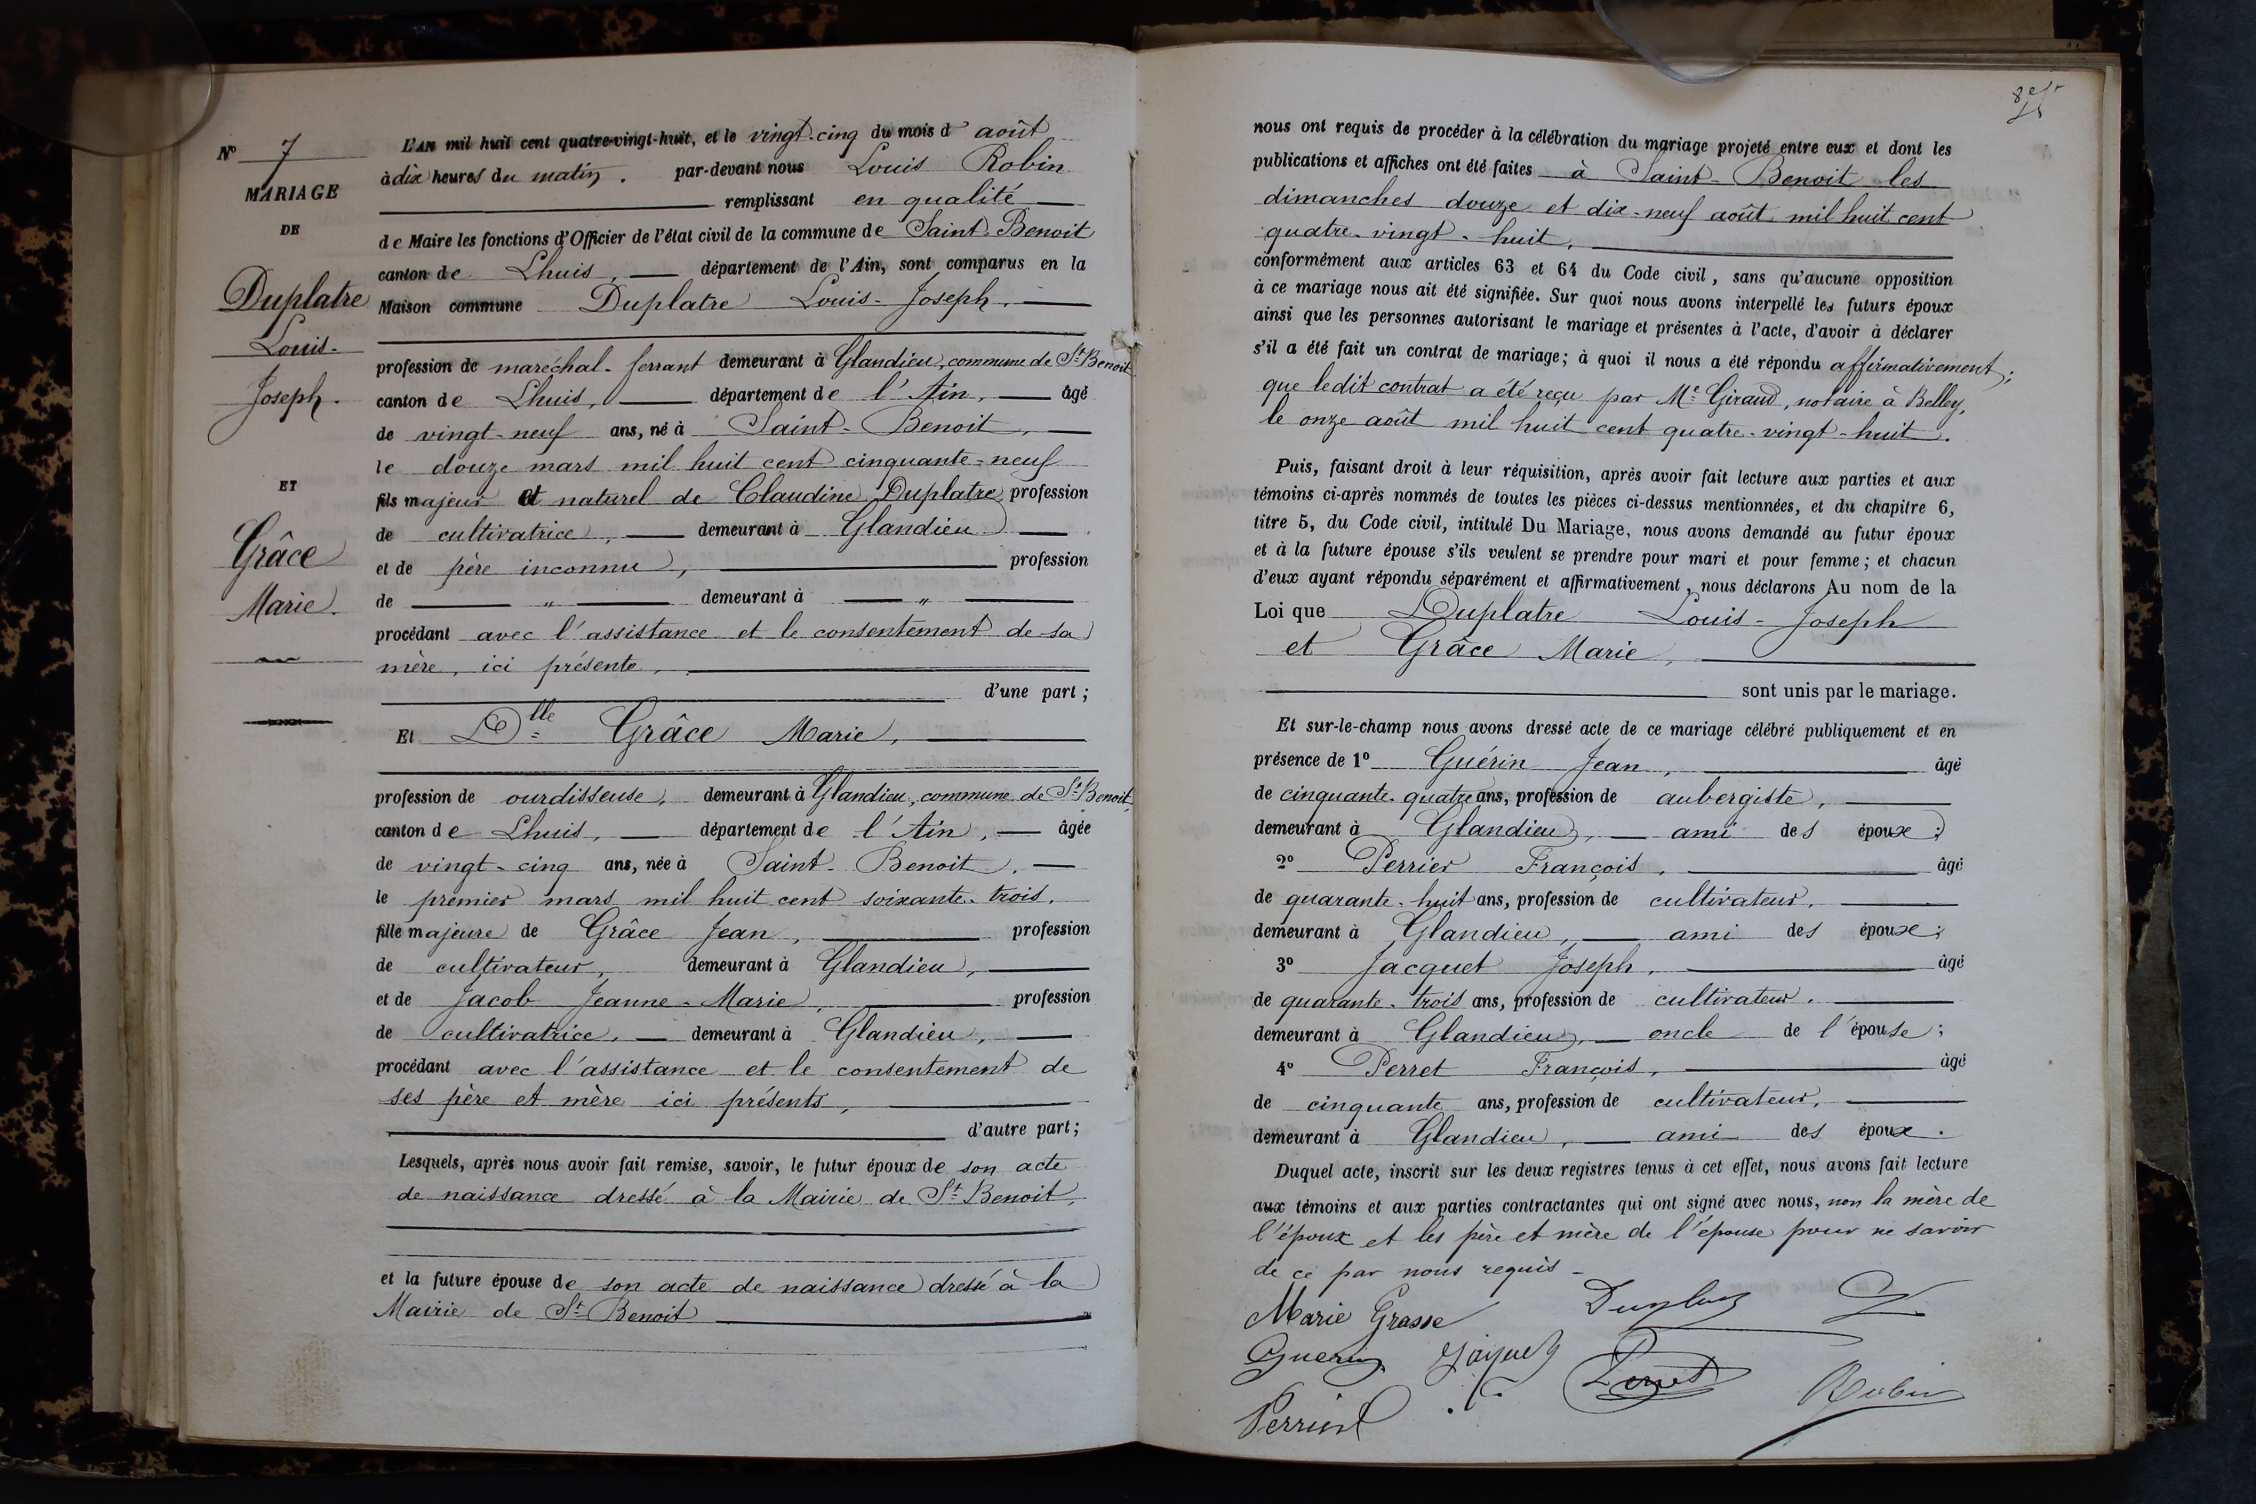 Nº 7
MARIAGE
DE
Duplatre
Louis-
Joseph.
ET
Grâce
Marie.
L'AN mil huit cent quatre-vingt-huit, et le vingt-cinq du mois d'août
à dix heures du matin. par-devant nous Louis Robin
remplissant en qualité
de Maire les fonctions d'Officier de l'état civil de la commune de Saint-Benoit
canton de Lhuis, département de l'Ain, sont comparus en la
Maison commune Duplatre Louis-Joseph.
profession de maréchal-ferrant demeurant à Glandieu, commune de St Benoit
canton de Lhuis, département de l'Ain, âgé
de vingt-neuf ans, né à Saint-Benoit,
le douze mars mil huit cent cinquante-neuf
fils majeur et naturel de Claudine Duplatre, profession
de cultivatrice, demeurant à Glandieu
et de père inconnu, profession
de " demeurant à "
procédant avec l'assistance et le consentement de sa
mère, ici présente,
d'une part;
Et Dlle Grâce Marie,
profession de ourdisseuse, demeurant à Glandieu, commune de St Benoit,
canton de Lhuis, département de l'Ain, âgée
de vingt-cinq ans, née à Saint-Benoit,
le premier mars mil huit cent soixante-trois,
fille majeure de Grâce Jean, profession
de cultivateur, demeurant à Glandieu,
et de Jacob Jeanne-Marie, profession
de cultivatrice, demeurant à Glandieu,
procédant avec l'assistance et le consentement de
ses père et mère ici présents,
d'autre part;
Lesquels, après nous avoir fait remise, savoir, le futur époux de son acte
de naissance dressé à la Mairie de St Benoit,
et la future épouse de son acte de naissance dressé à la
Mairie de St Benoit
nous ont requis de procéder à la célébration du mariage projeté entre eux et dont les
publications et affiches ont été faites à Saint-Benoit les
dimanches douze et dix-neuf août mil huit cent
quatre-vingt-huit,
conformément aux articles 63 et 64 du Code civil, sans qu'aucune opposition
à ce mariage nous ait été signifiée. Sur quoi nous avons interpellé les futurs époux
ainsi que les personnes autorisant le mariage et présentes à l'acte, d'avoir à déclarer
s'il a été fait un contrat de mariage; à quoi il nous a été répondu affirmativement;
que ledit contrat a été reçu par Me Giraud, notaire à Belley,
le onze août mil huit cent quatre-vingt-huit.
Puis, faisant droit à leur réquisition, après avoir fait lecture aux parties et aux
témoins ci-après nommés de toutes les pièces ci-dessus mentionnées, et du chapitre 6,
titre 5, du Code civil, intitulé Du Mariage, nous avons demandé au futur époux
et à la future épouse s'ils veulent se prendre pour mari et pour femme; et chacun
d'eux ayant répondu séparément et affirmativement, nous déclarons Au nom de la
Loi que Duplatre Louis-Joseph
et Grâce Marie,
sont unis par le mariage.
Et sur-le-champ nous avons dressé acte de ce mariage célébré publiquement et en
présence de 1º Guérin Jean, âgé
de cinquante-quatre ans, profession de aubergiste,
demeurant à Glandieu, ami des époux;
2º Perrier François, âgé
de quarante-huit ans, profession de cultivateur,
demeurant à Glandieu, ami des époux;
3º Jacquet Joseph, âgé
de quarante-trois ans, profession de cultivateur,
demeurant à Glandieu, oncle de l'épouse;
4º Perret François, âgé
de cinquante ans, profession de cultivateur,
demeurant à Glandieu, ami des époux.
Duquel acte, inscrit sur les deux registres tenus à cet effet, nous avons fait lecture
aux témoins et aux parties contractantes qui ont signé avec nous, non la mère de
l'époux et les père et mère de l'épouse pour ne savoir
de ce par nous requis-
Marie Grasse
Guerin
Perret Robin
Perrier